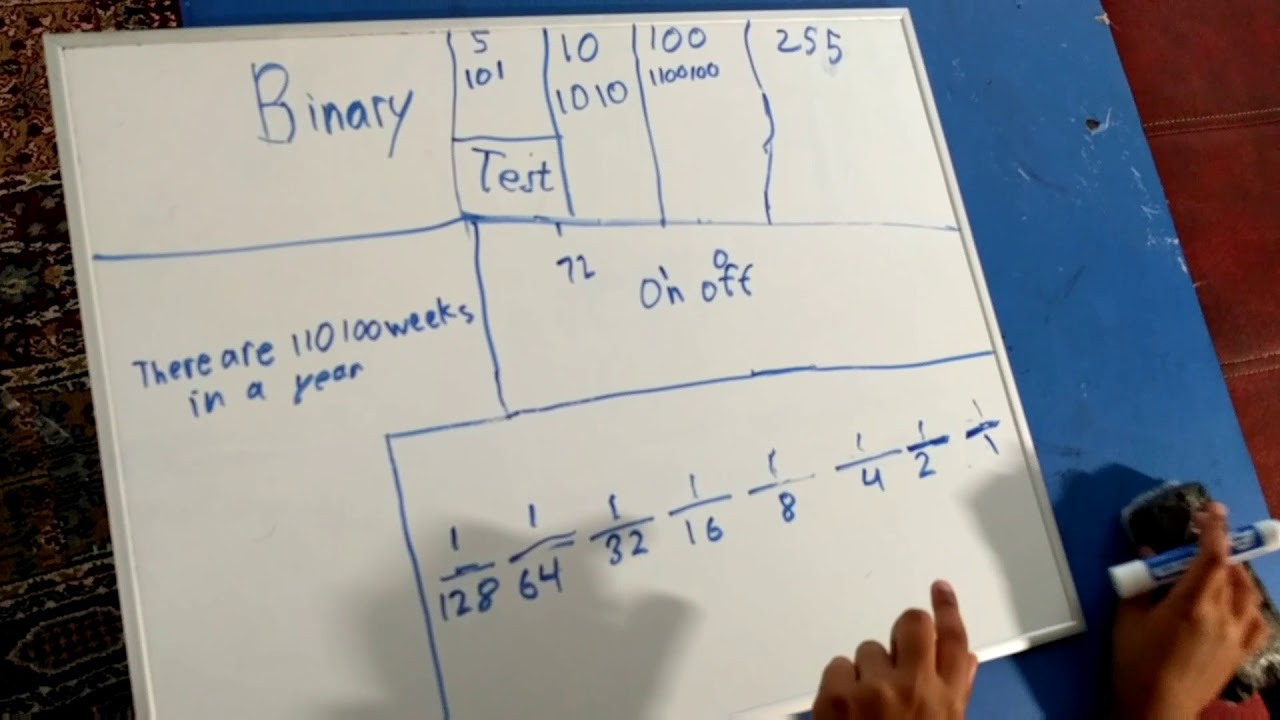 Binary
5
101
Test
10
1010
100
1100100
255
There are 110100 weeks
in a year
72
1 0
On off
1 1 1 1 1 1 1 1
128 64 32 16 8 4 2 1